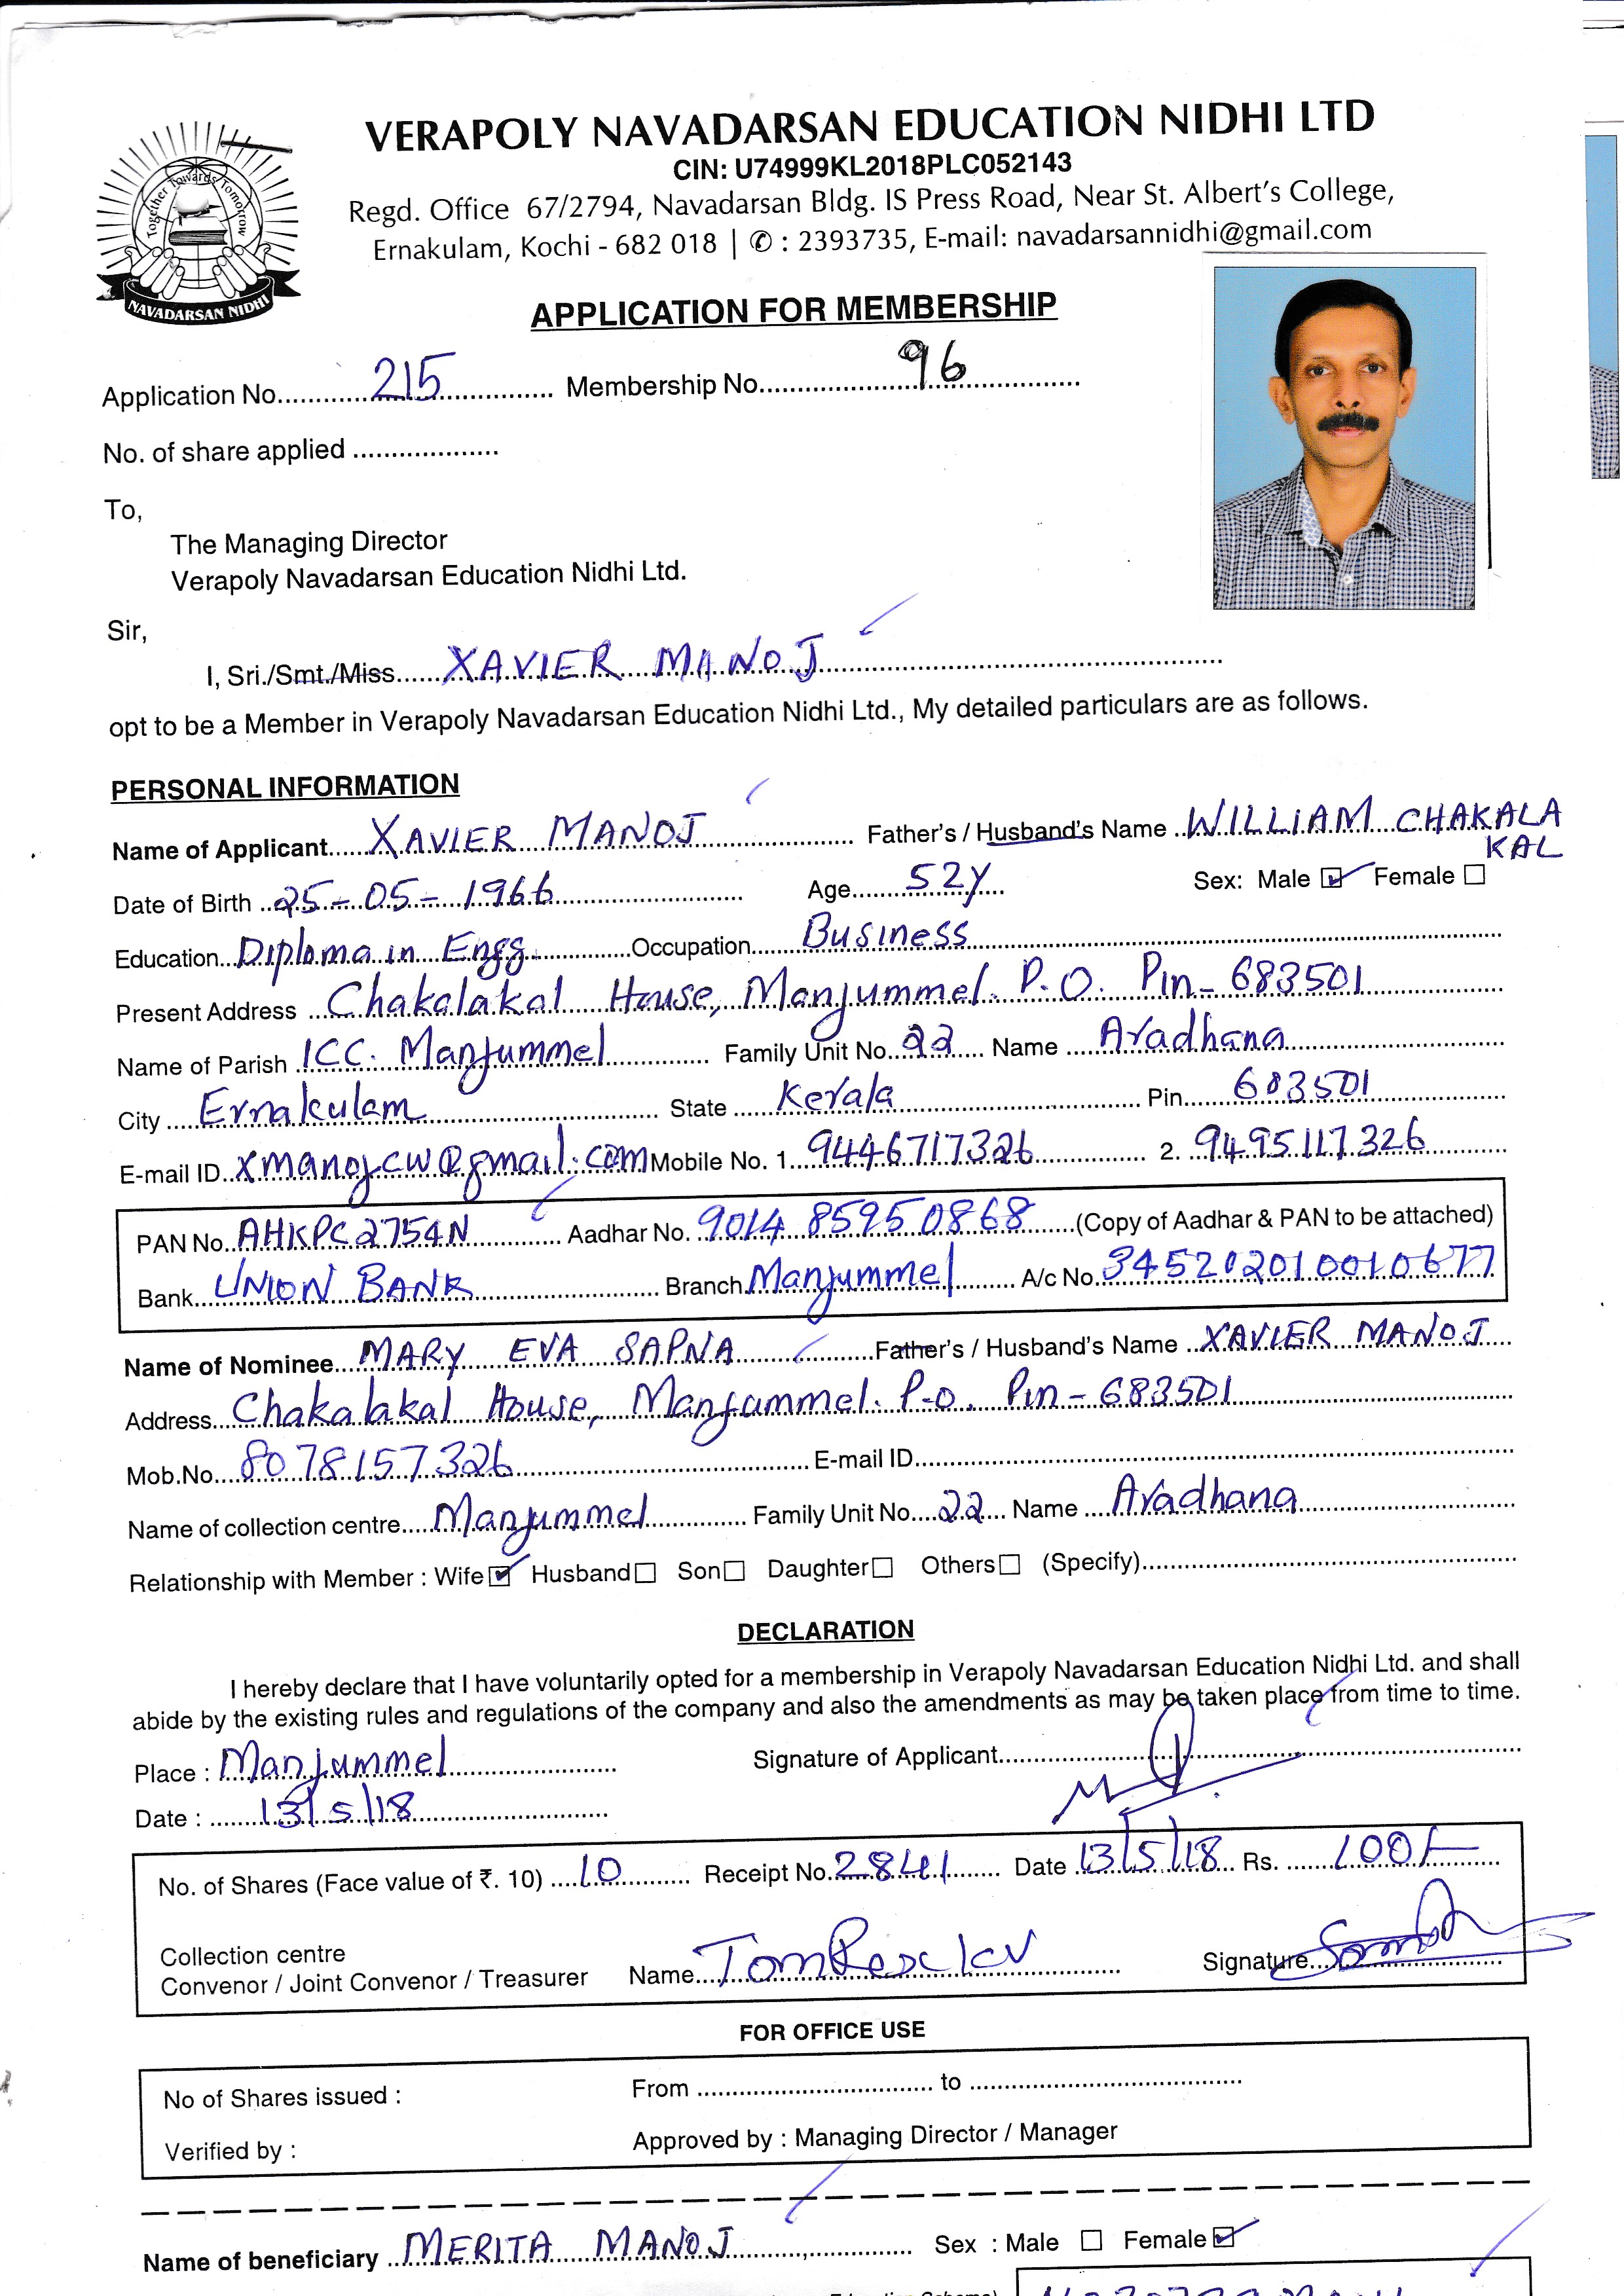 VERAPOLY NAVADARSAN EDUCATION NIDHI LTD
CIN: U74999KL2018PLC052143
Regd. Office 67/2794, Navadarsan Bldg. IS Press Road, Near St. Albert's College,
Ernakulam, Kochi - 682 018 | ✆ : 2393735, E-mail: navadarsannidhi@gmail.com
Together Towards Tomorrow
NAVADARSAN NIDHI
APPLICATION FOR MEMBERSHIP
Application No. 215 Membership No. 96
No. of share applied
To,
The Managing Director
Verapoly Navadarsan Education Nidhi Ltd.
Sir,
I, Sri./Smt./Miss XAVIER MANOJ
opt to be a Member in Verapoly Navadarsan Education Nidhi Ltd., My detailed particulars are as follows.
PERSONAL INFORMATION
Name of Applicant XAVIER MANOJ Father's / Husband's Name WILLIAM CHAKALA
KAL
Date of Birth 25-05-1966 Age 52y Sex: Male ☑ Female ☐
Education Diploma in Engg. Occupation Business
Present Address Chakalakal House, Manjummel. P.O. Pin- 683501
Name of Parish ICC. Manjummel Family Unit No. 22 Name Aradhana
City Ernakulam State Kerala Pin 683501
E-mail ID xmanojcw@gmail.com Mobile No. 1. 9446717326 2. 9495117326
PAN No. AHKPC2754N Aadhar No. 9014 8595 0868 (Copy of Aadhar & PAN to be attached)
Bank UNION BANK Branch Manjummel A/c No. 345202010010677
Name of Nominee MARY EVA SAPNA Father's / Husband's Name XAVIER MANOJ
Address Chakalakal House, Manjummel. P.O. Pin - 683501
Mob.No. 8078157326 E-mail ID
Name of collection centre Manjummel Family Unit No. 22 Name Aradhana
Relationship with Member : Wife ☑ Husband ☐ Son ☐ Daughter ☐ Others ☐ (Specify)
DECLARATION
I hereby declare that I have voluntarily opted for a membership in Verapoly Navadarsan Education Nidhi Ltd. and shall
abide by the existing rules and regulations of the company and also the amendments as may be taken place from time to time.
Place : Manjummel Signature of Applicant
Date : 13/5/18
No. of Shares (Face value of ₹. 10) 10 Receipt No. 2841 Date 13/5/18 Rs. 100/-
Collection centre
Convenor / Joint Convenor / Treasurer Name Tom Signature
FOR OFFICE USE
No of Shares issued : From to
Verified by : Approved by : Managing Director / Manager
Name of beneficiary MERITA MANOJ Sex : Male ☐ Female ☑